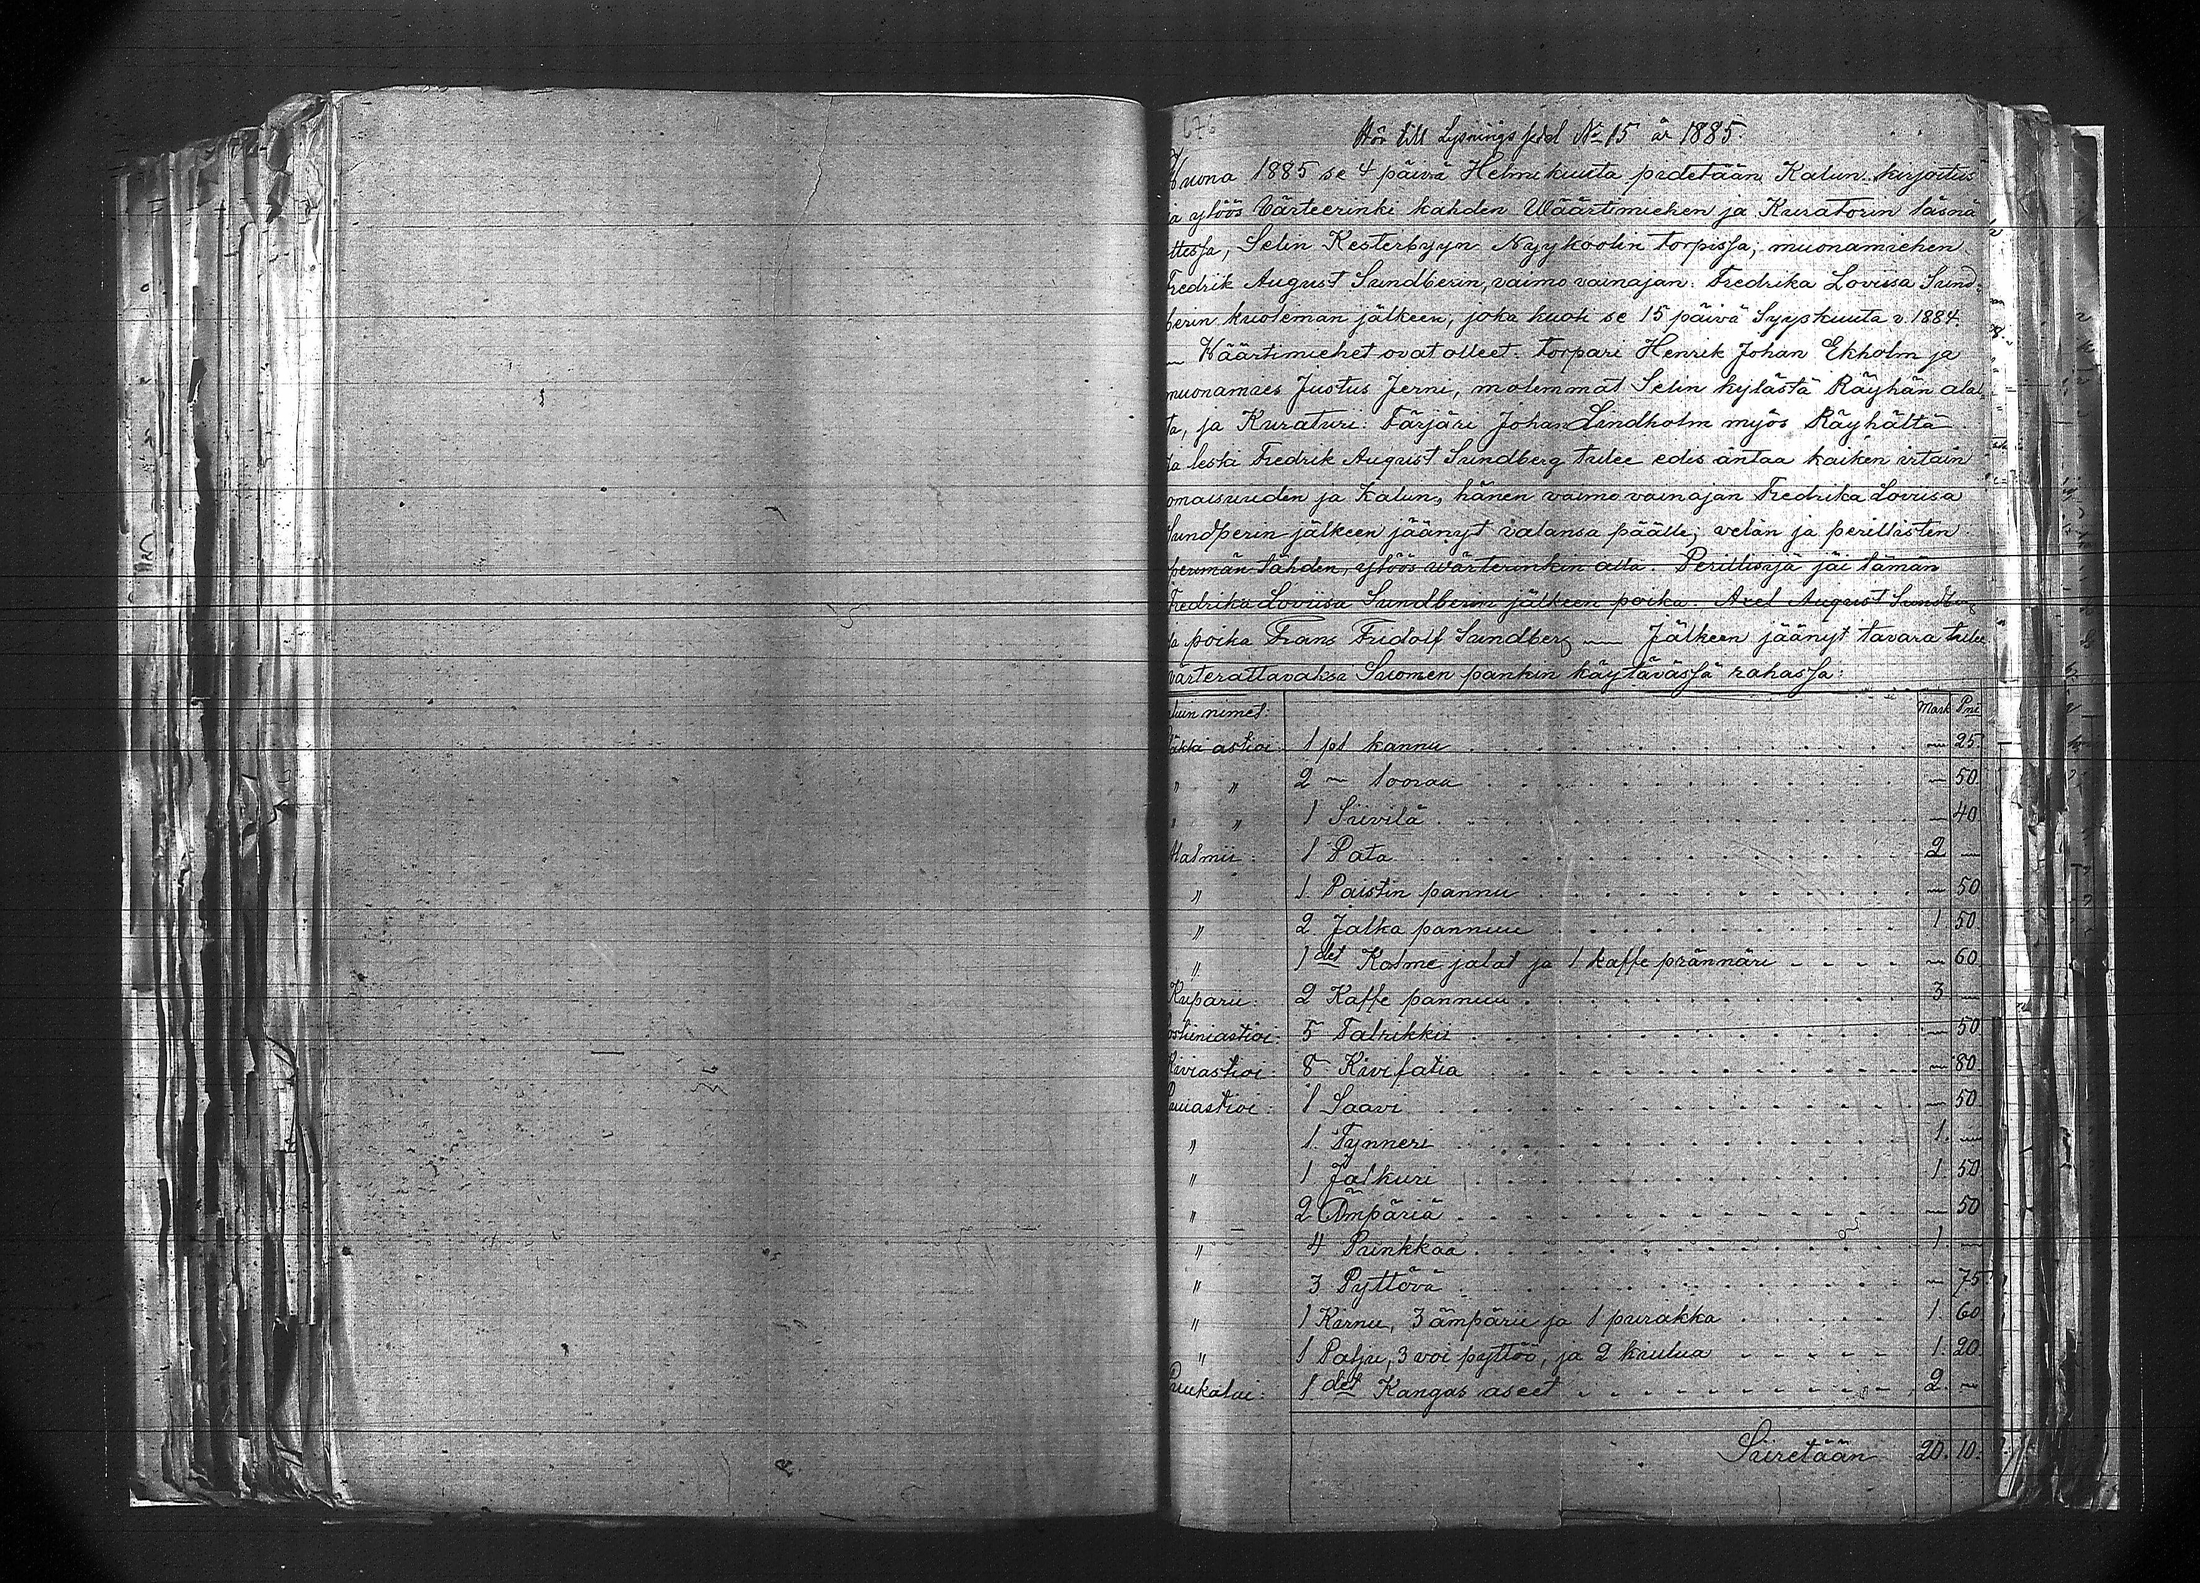 676
Hör till Lysnings sedel No 15 år 1885.
Wuona 1885 se 4 päivä Helmikuuta pidetään Kalun kirjoitus
ja ylöös Värteerinki kahden Wäärtimiehen ja Kuratorin läsnä
ollessa, Selin Kesterbyyn Nyykoolin torpissa, muonamiehen
Fredrik August Sundberin, vaimo vainajan: Fredrika Loviisa Sund-
berin kuoleman jälkeen, joka kuoli se 15 päivä Syyskuuta v. 1884.
— Wäärtimiehet ovat olleet: torpari Henrik Johan Ekholm ja
muonamies Justus Jerni, molemmat Selin kylästä Räyhän alal-
ta, ja Kuraturi: Färjäri Johan Lindholm myös Räyhältä
Ja leski Fredrik August Sundberg tulee edes antaa kaiken irtain
omaisuuden ja Kalun, hänen vaimo vainajan Fredrika Loviisa
Sundperin jälkeen jäänyt valansa päälle; velan ja perillisten
perimän tähden, ylöös wärterinkin alla. Perillisijä jäi tämän
Fredrika Loviisa Sundberin jälkeen poika: Axel August Sundberg
ja poika Frans Fridolf Sundberg — Jälkeen jäänyt tavara tulee
värterattavaksi Suomen pankin käytävässä rahassa:
Kaluin nimet: Mark Pni
Läkki astioi: 1 pl kannu — 25
" " 2 ~ looraa — 50
" " 1 Siivilä — 40
Malmii: 1 Pata 2 —
" 1. Paistin pannu — 50
" 2 Jalka pannuu 1 50
" 1 det Kolme jalat ja 1 kaffe prännäri — 60
Kuparii: 2 Kaffe pannuu 3 —
Posliiniastioi: 5 Talrikkii — 50
Kiviastioi: 8 Kivifatia — 80
Puuastioi: 1 Saavi — 50
" 1. Tynneri 1. —
" 1 Jalkuri 1. 50
" 2 Ämpäriä — 50
" 4 Punkkaa 1 —
" 3 Pyttövä — 75
" 1 Kirnu, 3 ämpärii ja 1 purakka 1. 60
" 1 Palju, 3 voi pyttöö, ja 2 kiulua 1. 20
Puukalui: 1 det Kangas aseet 2 —
Siiretään 20. 10.